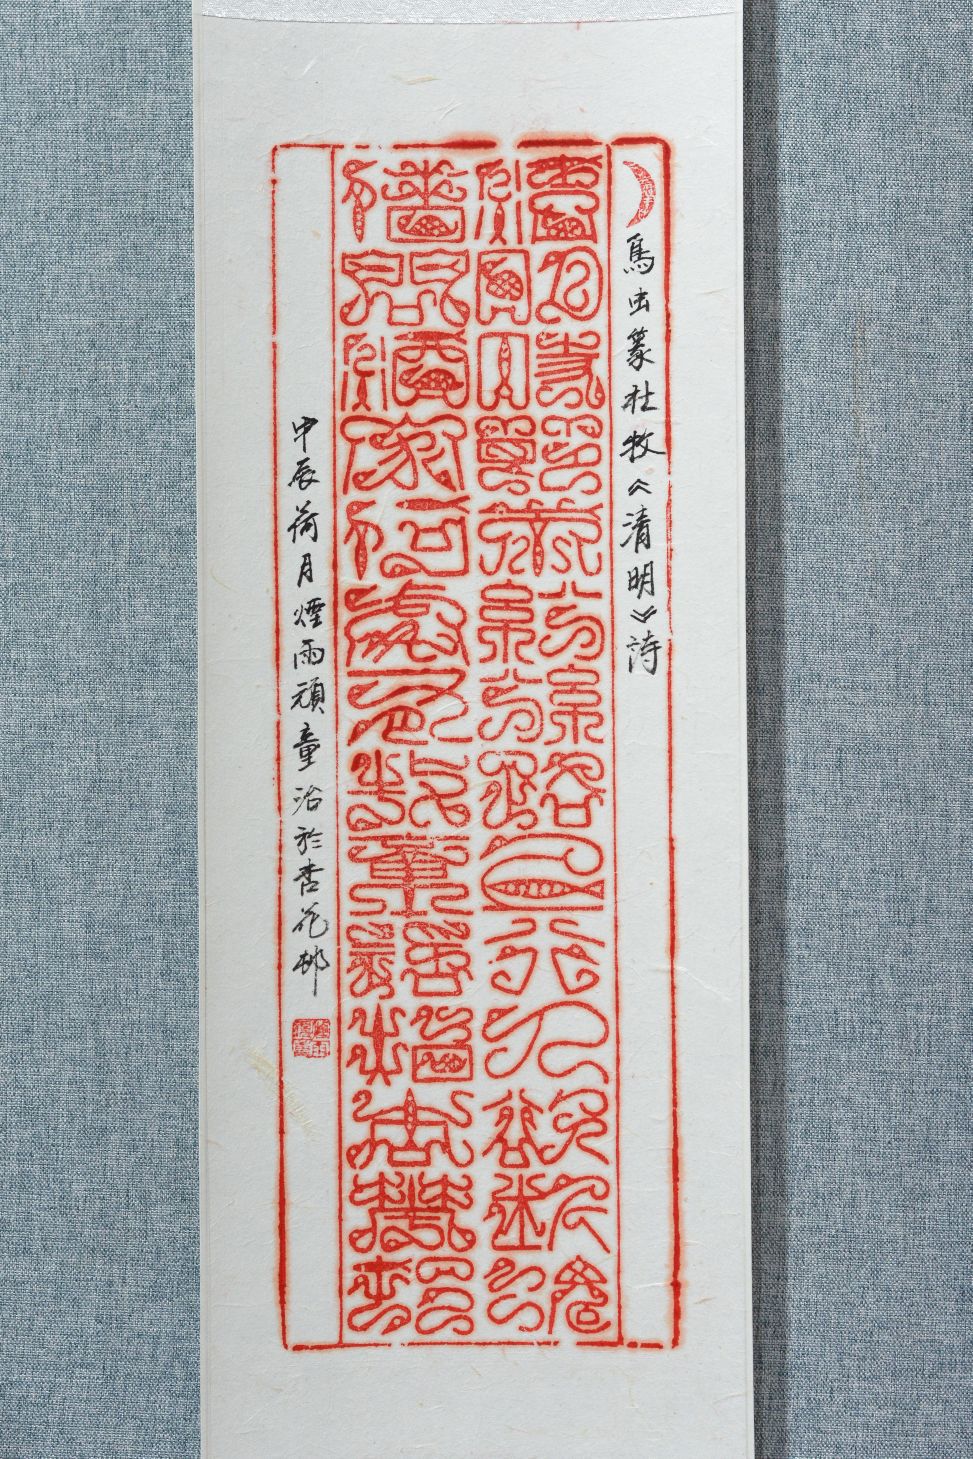 鳥虫篆杜牧《清明》詩
清明時節雨紛紛路上行人欲斷魂
借問酒家何處有牧童遙指杏花邨
甲辰荷月煙雨頑童治於杏花邨